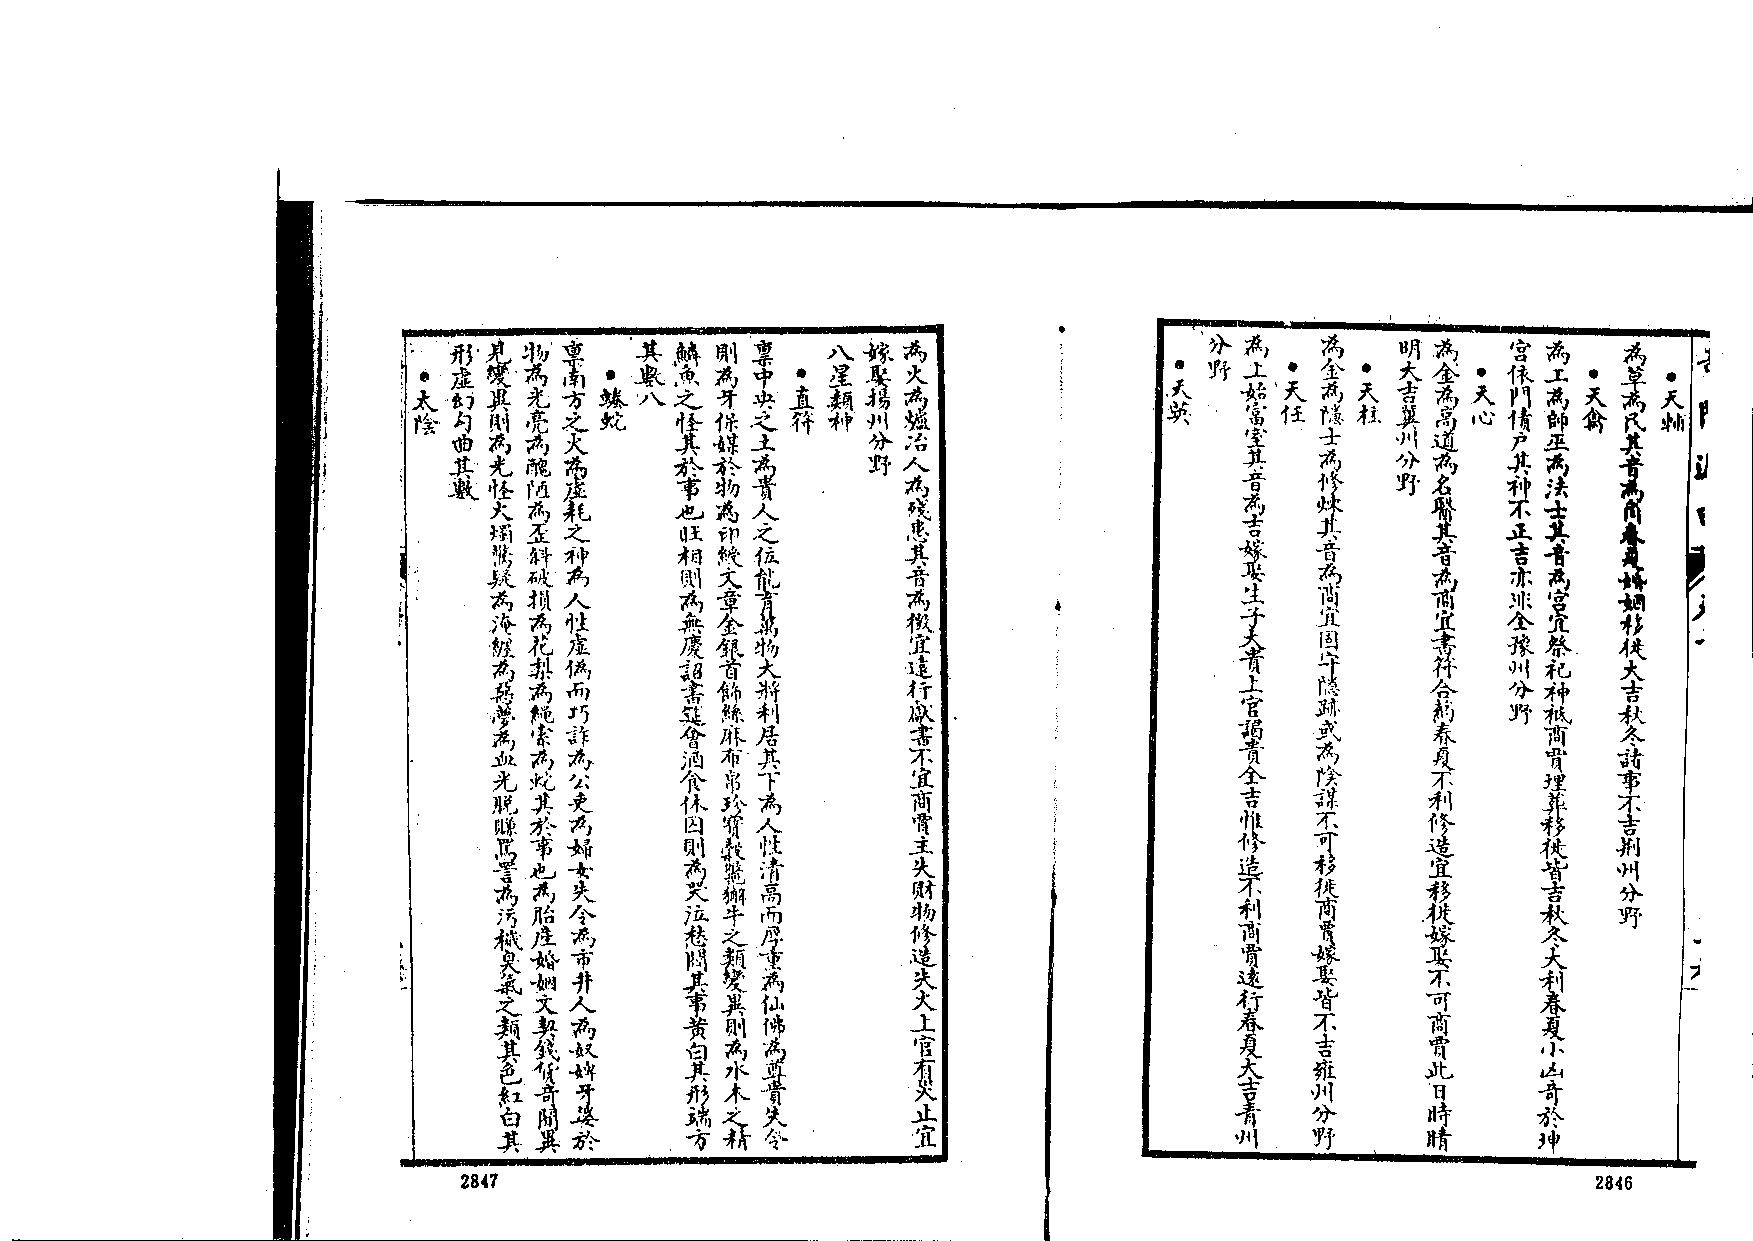 •天輔
為草為民其音為商春夏婚姻移徙大吉秋冬諸事不吉荆州分野
•天禽
為工為師巫為法士其音為宮宜祭祀神祗商賈埋葬移徙皆吉秋冬大利春夏小凶奇於坤
宮依門倩户其神不正吉亦非全豫州分野
•天心
為金為高道為名醫其音為商宜書符合葯春夏不利修造宜移徙嫁娶不可商賈此日時晴
明大吉冀州分野
•天柱
為金為隱士為修煉其音為商宜固守隱跡或為陰謀不可移徙商賈嫁娶皆不吉雍州分野
•天任
為上始富室其音為吉嫁娶生子大貴上官謁貴全吉惟修造不利商賈遠行春夏大吉青州
分野
•天英
2846
為火為爐冶人為殘患其音為徵宜遠行獻書不宜商賈主失財物修造失火上官有災止宜
嫁娶揚州分野
八星類神
•直符
稟中央之土為貴人之位能育萬物大將利居其下為人性清高而厚重為仙佛為尊貴失令
則為牙保媒於物為印綬文章金銀首飾絲麻布帛珍寶穀獬牛之類變異則為水木之精
鱗魚之怪其於事也旺相則為無慶詔書進會酒食休囚則為哭泣愁悶其事黄白其形端方
其數八
•螣蛇
稟南方之火為虚耗之神為人性虚偽而巧詐為公吏為婦女失令為市井人為奴婢牙婆於
物為光亮為醜陋為歪斜破損為花梨為繩索為蛇其於事也為胎産婚姻文契錢貨奇聞異
見變異則為光怪火燭驚疑為淹纏為惡夢為血光脱賺罵詈為污穢臭氣之類其色紅白其
形虚幻勾曲其數
•太陰
2847